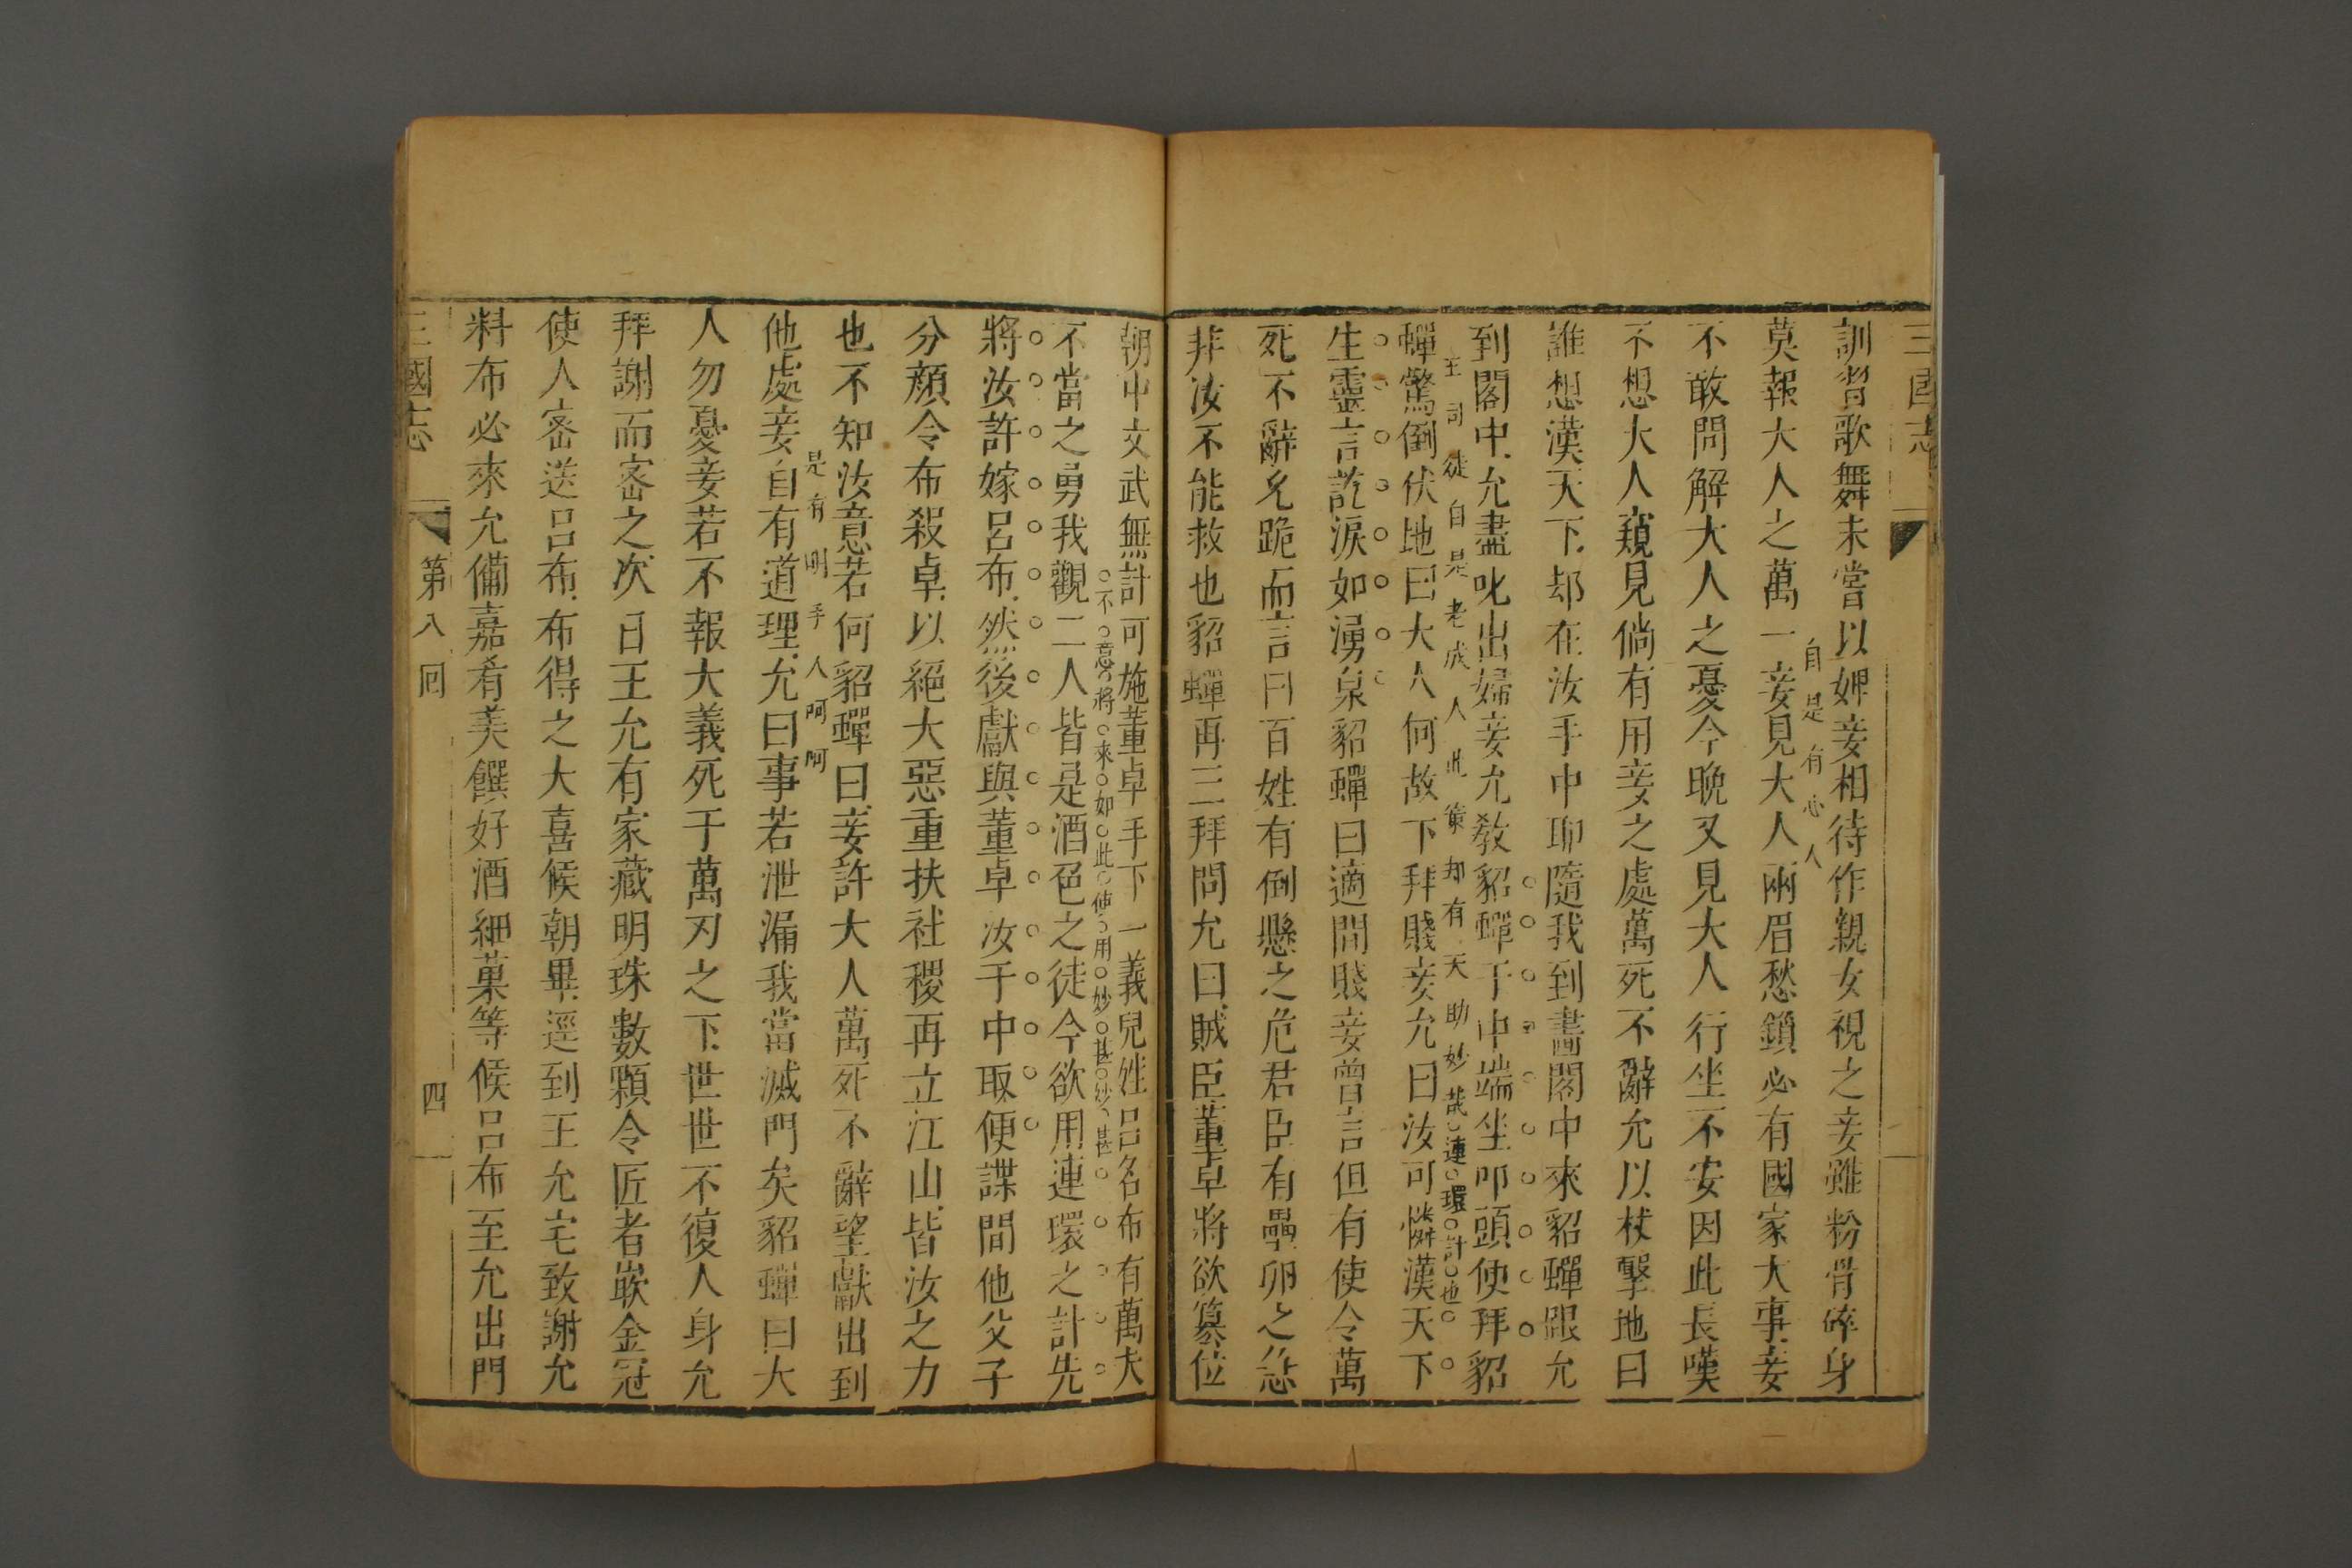 三國志
訓習歌舞未嘗以婢妾相待作親女視之妾雖粉骨碎身
莫報大人之萬一妾見大人兩眉愁鎖必有國家大事妾
自是有心人
不敢問解大人之憂今晚又見大人行坐不安因此長嘆
不想大人窺見倘有用妾之處萬死不辭允以杖擊地曰
誰想漢天下却在汝手中耶隨我到畫閣中來貂蟬跟允
到閣中允盡叱出婦妾允教貂蟬于中端坐叩頭使拜貂
王司徒自是老成人此策却有天助妙哉連環計也
蟬驚倒伏地曰大人何故下拜賤妾允曰汝可憐漢天下
生靈言訖淚如湧泉貂蟬曰適間賤妾曾言但有使令萬
死不辭允跪而言曰百姓有倒懸之危君臣有壘卵之急
非汝不能救也貂蟬再三拜問允曰賊臣董卓將欲篡位
朝中文武無計可施董卓手下一義兒姓呂名布有萬夫
不意將來如此使用妙甚妙甚
不當之勇我觀二人皆是酒色之徒今欲用連環之計先
將汝許嫁呂布然後獻與董卓汝于中取便諜間他父子
分顏令布殺卓以絕大惡重扶社稷再立江山皆汝之力
也不知汝意若何貂蟬曰妾許大人萬死不辭望獻出到
是有明手人阿阿
他處妾自有道理允曰事若泄漏我當滅門矣貂蟬曰大
人勿憂妾若不報大義死于萬刃之下世世不復人身允
拜謝而密之次日王允有家藏明珠數顆令匠者嵌金冠
使人密送呂布布得之大喜候朝畢逕到王允宅致謝允
料布必來允備嘉肴美饌好酒細菓等候呂布至允出門
三國志 第八回 四